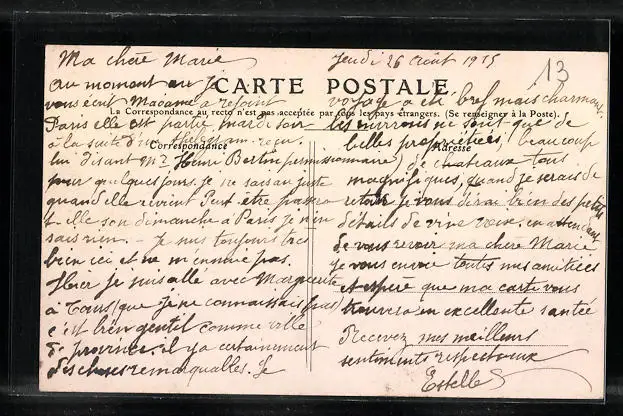 Jeudi 26 Août 1915
13
CARTE POSTALE
La Correspondance au recto n'est pas acceptée par tous les pays étrangers. (Se renseigner à la Poste).
Correspondance
Adresse
Ma chère Marie
au moment où je
vous écrit Madame a rejoint
Paris elle est partie mardi soir
à la suite d'un télégramme reçu
lui disant Mr Henri Bertin permissionnaire
pour quelques jours. je ne sais au juste
quand elle revient peut être passera
t. elle son dimanche à Paris je n'en
sais rien. - je suis toujours très
bien ici et ne m'ennuie pas.
Hier je suis allé avec Marguerite
à Tours (que je ne connaissais pas)
c'est bien gentil comme ville
de province. il y a certainement
des choses remarquables. Le
voyage a été bref mais charmant
les environs ne sont que de
belles propriétées, beaucoup
de chateaux tous
magnifiques, quand je serais de
retour je vous dirai bien des petits
détails de vive voix. en attendant
de vous revoir ma chère Marie
je vous envoie toutes mes amitiées
et espère que ma carte vous
trouvera en excellente santée
Recevez mes meilleurs
sentiments respectueux
Estelle